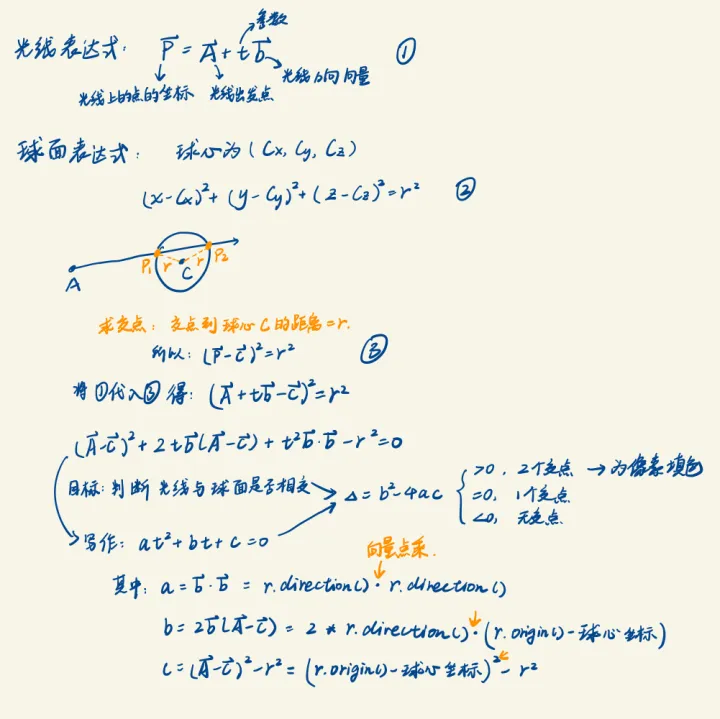 参数
光线表达式： P⃗ = A⃗ + t b⃗ ①
光线上的点的坐标 光线出发点 光线方向向量
球面表达式： 球心为 (Cx, Cy, Cz)
(x-Cx)²+(y-Cy)²+(z-Cz)²=r² ②
P₁ r r P₂
A C
求交点：交点到球心C的距离=r.
所以：(P⃗-C⃗)²=r² ③
将①代入③得：(A⃗+tb⃗-C⃗)²=r²
(A⃗-C⃗)²+2tb⃗(A⃗-C⃗)+t²b⃗·b⃗-r²=0
目标：判断光线与球面是否相交
Δ=b²-4ac
>0，2个交点 → 为像素填色
=0，1个交点
<0，无交点
写作：at²+bt+c=0
向量点乘.
其中：a=b⃗·b⃗ = r.direction()·r.direction()
b=2b⃗(A⃗-C⃗) = 2 * r.direction()·(r.origin()-球心坐标)
c=(A⃗-C⃗)²-r²=(r.origin()-球心坐标)²-r²